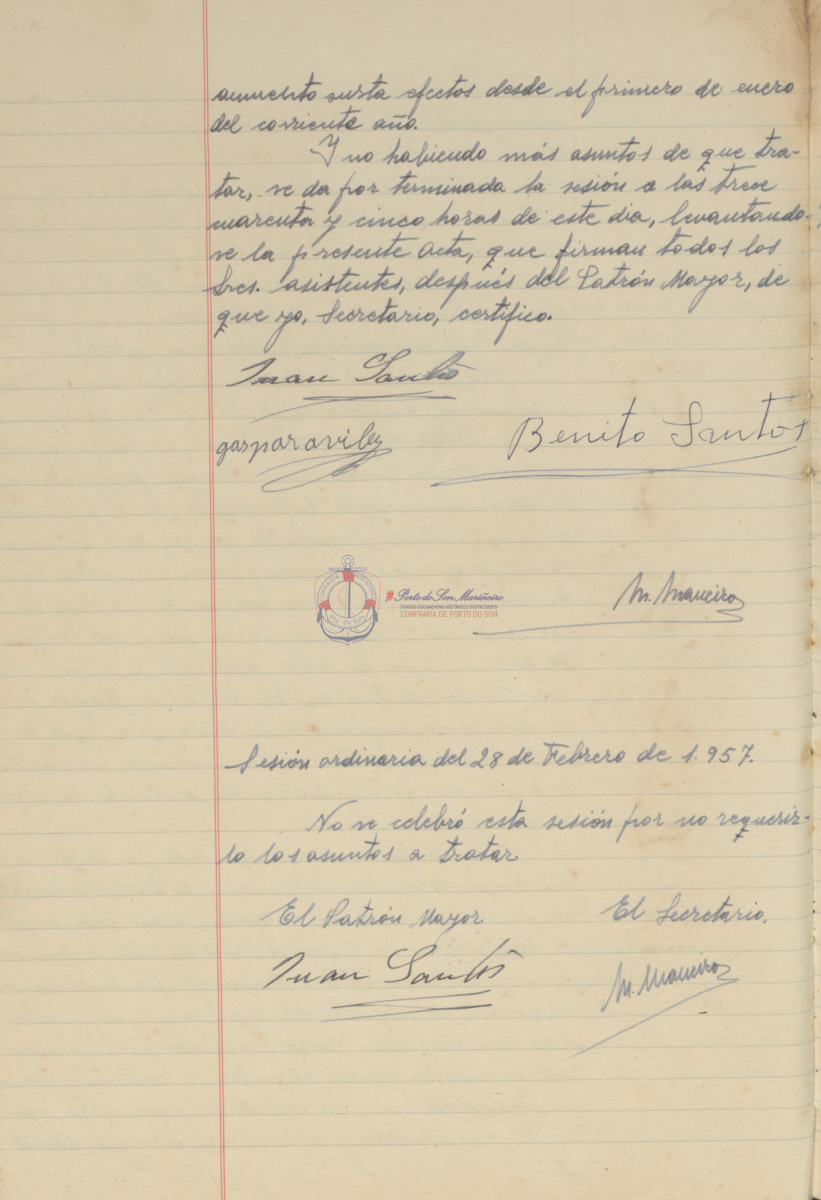 aumento surta efectos desde el primero de enero
del corriente año.
Y no habiendo más asuntos de que tra-
tar, se da por terminada la sesión a las trece
cuarenta y cinco horas de este dia, levantando-
se la presente Acta, que firman todos los
Sres. asistentes, después del Patrón Mayor, de
que yo, Secretario, certifico.
Juan Santos
gasparavilez
Benito Santos
#Porto do Son Mariñeiro
FONDOS DOCUMENTAIS HISTÓRICOS DIXITALIZADOS
CONFRARÍA DE PORTO DO SON
M. Maneiro
Sesión ordinaria del 28 de Febrero de 1.957.
No se celebró esta sesión por no requerir-
lo los asuntos a tratar
El Patrón Mayor
El Secretario,
Juan Santos
M. Maneiro